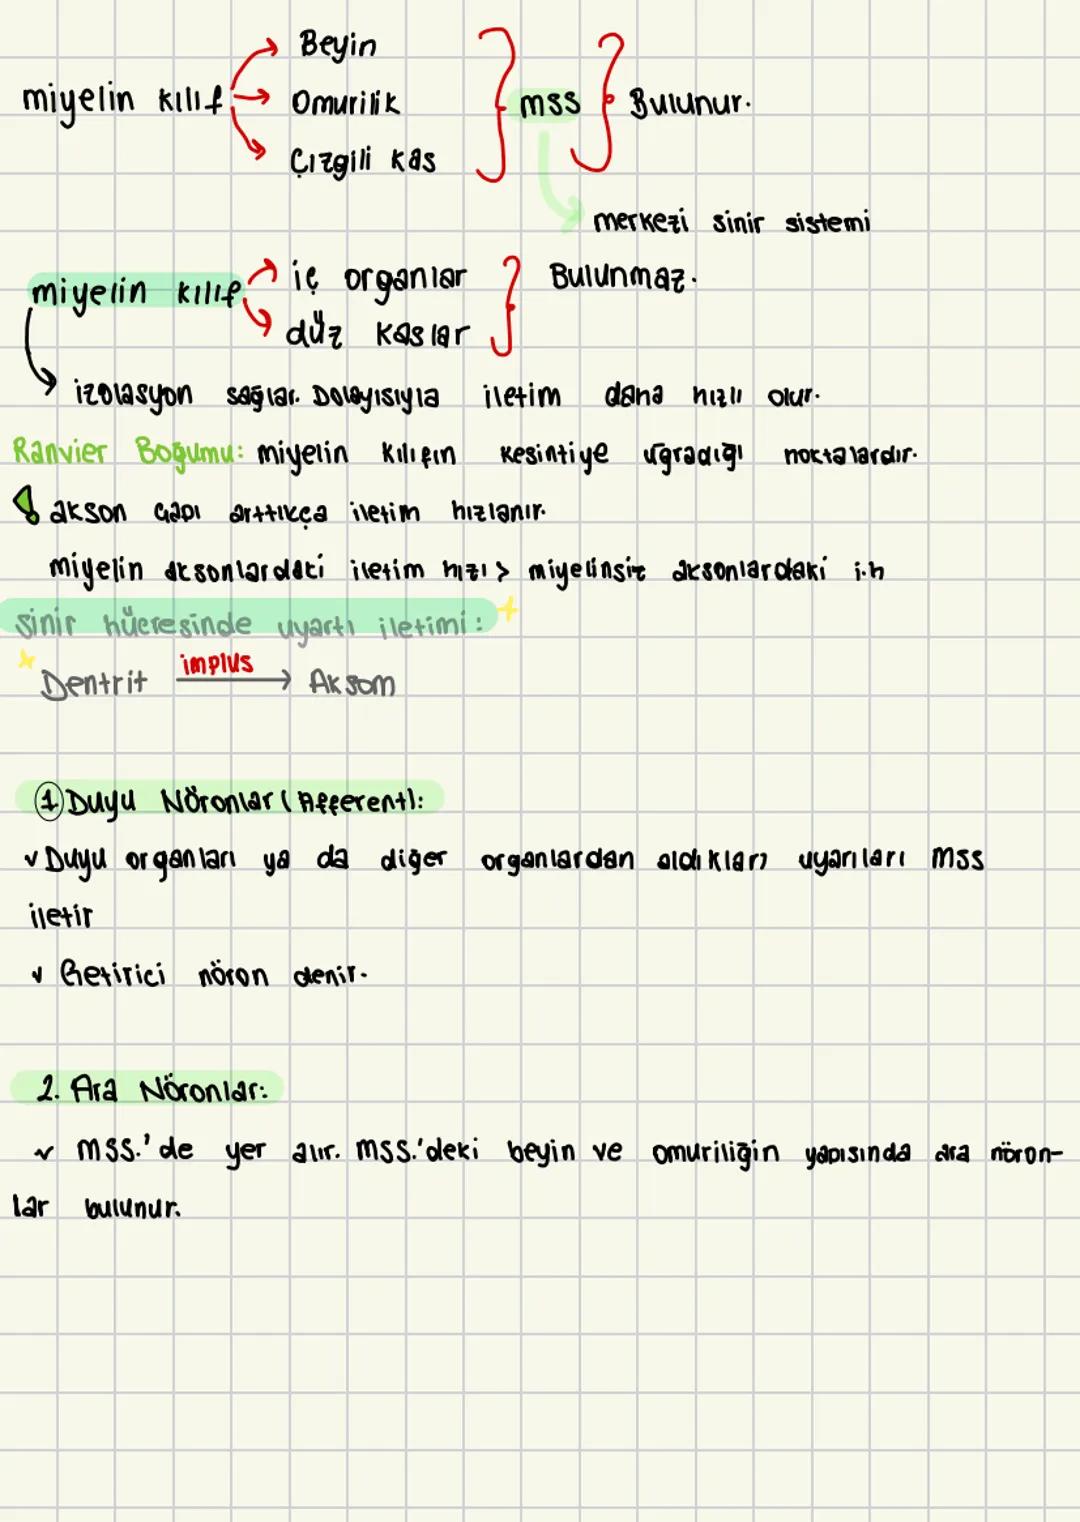 Beyin
miyelin kılıf → Omurilik } mss } Bulunur.
Çizgili kas
merkezi sinir sistemi
miyelin kılıf iç organlar } Bulunmaz.
düz kaslar
izolasyon sağlar. Dolayısıyla iletim daha hızlı olur.
Ranvier Boğumu: miyelin kılıfın kesintiye uğradığı noktalardır.
! akson çapı arttıkça iletim hızlanır.
miyelin aksonlardaki iletim hızı > miyelinsiz aksonlardaki i.h
Sinir hücresinde uyartı iletimi:
implus
Dentrit → Aksom
1 Duyu Nöronlar (Afferent):
✓ Duyu organları ya da diğer organlardan aldıkları uyarıları mss
iletir
✓ Getirici nöron denir.
2. Ara Nöronlar:
✓ mss.'de yer alır. mss.'deki beyin ve omuriliğin yapısında ara nöron-
lar bulunur.